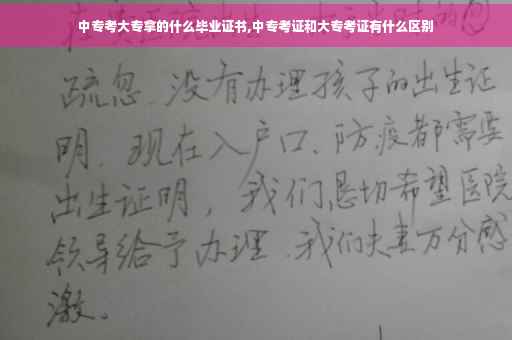 中专考大专拿的什么毕业证书,中专考证和大专考证有什么区别
疏忽、没有办理孩子的出生证
明、现在入户口、防疫都需要
出生证明，我们恳切希望医院
领导给予办理、我们夫妻万分感
激。